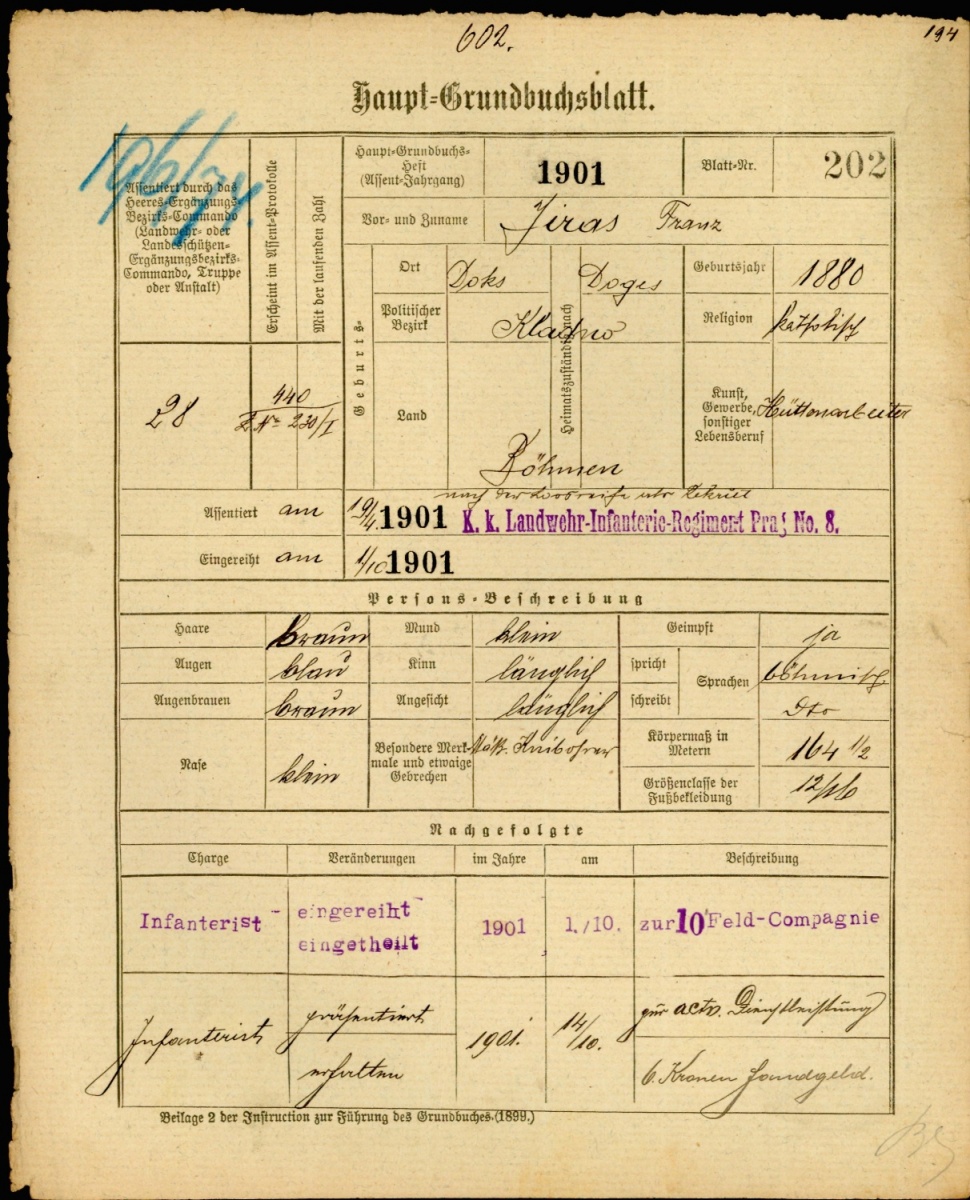 602.
194
Haupt=Grundbuchsblatt.
Assentiert durch das
Heeres=Ergänzungs=
Bezirks=Commando
(Landwehr= oder
Landesschützen=
Ergänzungsbezirks=
Commando, Truppe
oder Anstalt)
Erscheint im Assent=Protokolle
Mit der laufenden Zahl
Haupt=Grundbuchs=
Heft
(Assent=Jahrgang)
1901
Blatt=Nr.
202
Vor= und Zuname
Jiras Franz
Geburts=
Ort
Doks
Heimatszuständig nach
Doges
Geburtsjahr
1880
Politischer
Bezirk
Kladno
Religion
katholisch
28
440
Z Nr 230/I
Land
Böhmen
Kunst,
Gewerbe,
sonstiger
Lebensberuf
Hüttenarbeiter
nach der Losreihe als Rekrut
Assentiert am
19/4. 1901
K. k. Landwehr-Infanterie-Regiment Prag No. 8.
Eingereiht am
1/10 1901
Persons=Beschreibung
Haare
braun
Mund
klein
Geimpft
ja
Augen
blau
Kinn
länglich
spricht
Sprachen
böhmisch
Augenbrauen
braun
Angesicht
länglich
schreibt
dto
Nase
klein
Besondere Merk=
male und etwaige
Gebrechen
Körpermaß in
Metern
164 1/2
Größenclasse der
Fußbekleidung
12/16
Nachgefolgte
Charge
Veränderungen
im Jahre
am
Beschreibung
Infanterist
eingereiht
eingetheilt
1901
1./10.
zur 10 Feld-Compagnie
Infanterist
präsentiert
erhalten
1901.
14/10.
zur activ. Dienstleistung
6 Kronen Handgeld.
Beilage 2 der Instruction zur Führung des Grundbuches. (1899.)